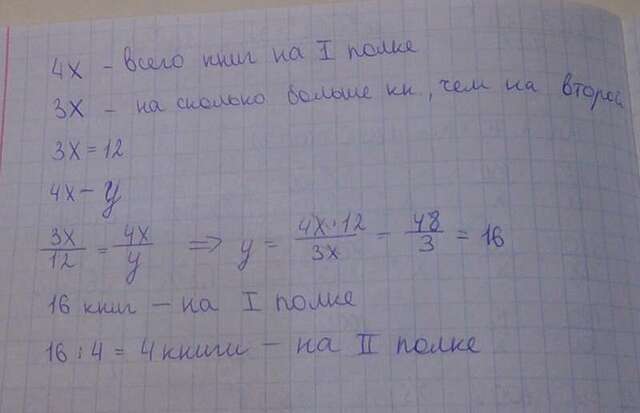 4x - всего книг на I полке
3x - на сколько больше кн., чем на второй
3x = 12
4x - y
3x/12 = 4x/y => y = 4x·12/3x = 48/3 = 16
16 книг - на I полке
16 : 4 = 4 книги - на II полке